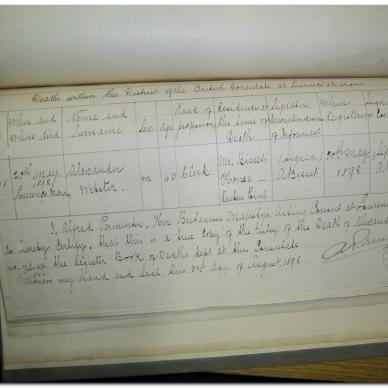 Deaths within the District of the British Consulate at Lourenço Marques
When and Where died
Name and Surname
Sex
age
Rank or profession
Residence at the time of Death
Signature of Informant
When Registered
20th May 1898 Lourenço Marques
Alexander Webster.
m.
40
Clerk
Mr. Bissett House –
(Signed) A Bissett
30th May 1898
I, Alfred Parminter, Her Britannic Majesty's Acting Consul at Lourenço
do hereby Certify, that this is a true Copy of the Entry of the Death of
in the Register Book of Deaths kept at this Consulate.
Witness my hand and Seal, this 3rd day of August, 1898.